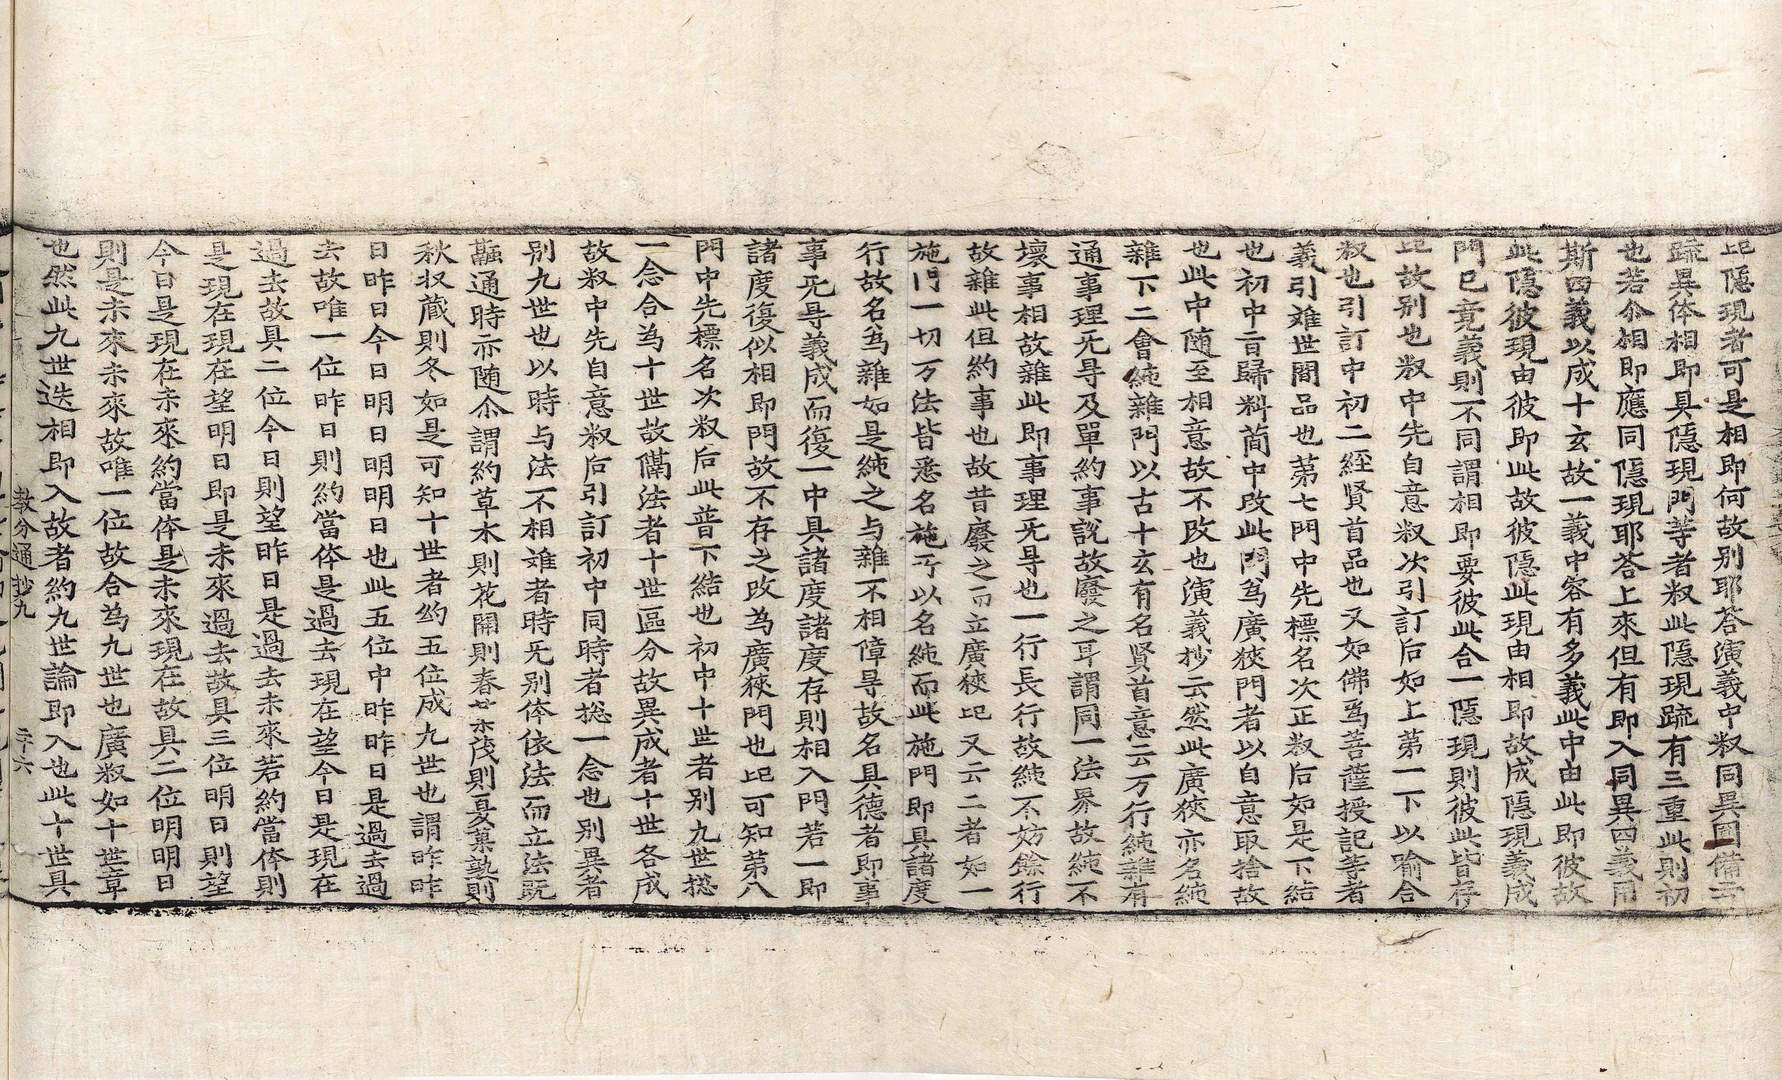 此隱現者可是相即何故別耶荅演義中叙同異圎備云
䟽異体相即具隱現門等者叙此隱現䟽有三重此則初
也若尒相即應同隱現耶荅上來但有即入同異四義用
斯四義以成十玄故一義中容有多義此中由此即彼故
此隱彼現由彼即此故彼隱此現由相即故成隱現義成
門已竟義則不同謂相即要彼此合一隱現則彼此皆存
此故別也叙中先自意叙次引訂后如上第一下以喻合
叙也引訂中初二経賢首品也又如佛爲菩薩授記等者
義引難世間品也苐七門中先標名次正叙后如是下結
也初中言歸料簡中改此門爲廣狹門者以自意取捨故
也此中随至相意故不改也演義抄云然此廣狹亦名純
雜下二會純雜門以古十玄有名賢首意云万行純雜有
通事理旡㝵及單約事說故廢之耳謂同一法界故純不
壞事相故雜此即事理旡㝵也一行長行故純不妨餘行
故雜此但約事也故昔廢之而立廣狹巳又云二者如一
施門一切万法皆悉名施所以名純而此施門即具諸度
行故名爲雜如是純之与雜不相障㝵故名具德者即事
事旡㝵義成而復一中具諸度諸度存則相入門若一即
諸度復似相即門故不存之改為廣狹門也此可知第八
門中先標名次叙后此普下結也初中十世者別九世揔
一念合為十世故儞法者十世區分故異成者十世各成
故叙中先自意叙后引訂初中同時者揔一念也別異者
別九世也以時与法不相離者時旡別体依法而立法既
融通時亦随尒謂約草木則花開則春 茂則夏菓熟則
秋収蔵則冬如是可知十世者約五位成九世也謂昨昨
日昨日今日明日明明日也此五位中昨昨日是過去過
去故唯一位昨日則約當体是過去現在望今日是現在
過去故具二位今日則望昨日是過去未來若約當体則
是現在現在望明日即是未來過去故具三位明日則望
今日是現在未來約當体是未來現在故具二位明明日
則是未來未來故唯一位故合為九世也廣叙如十世章
也然此九世迭相即入故者約九世論即入也此十世具
教分通抄九